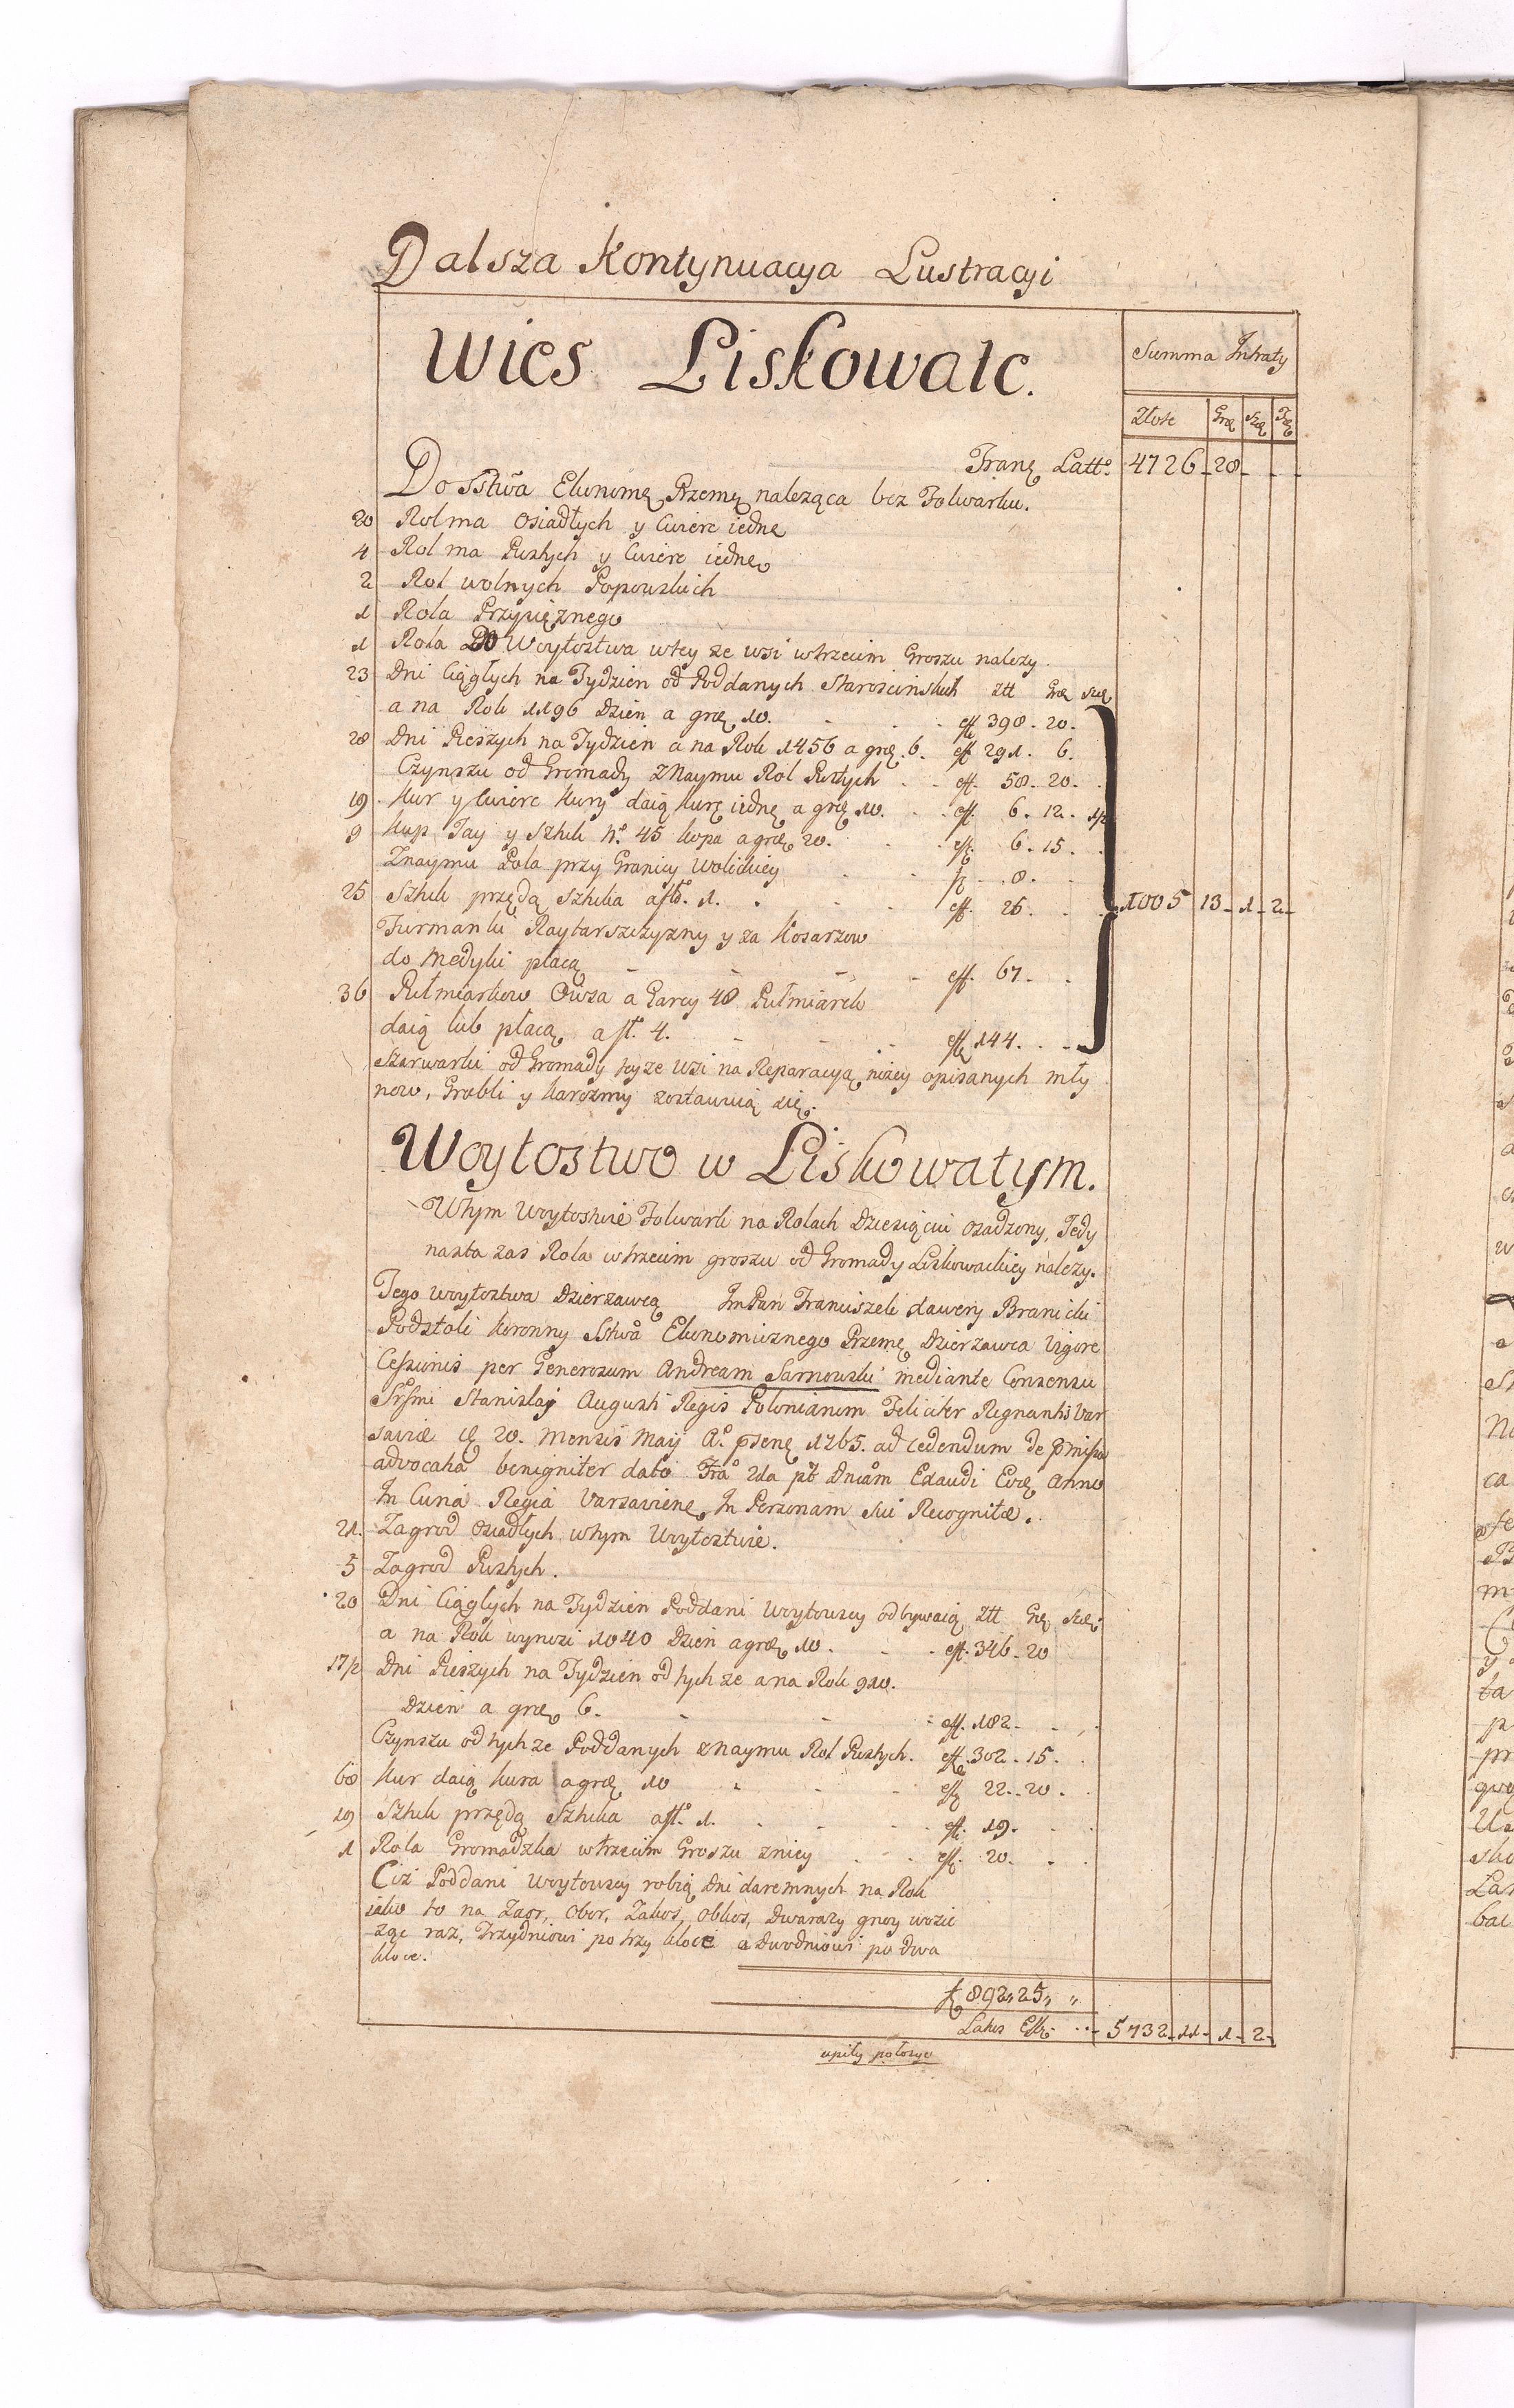 Dalsza Kontynuacya Lustracyi
Wies Liskowate.
Summa Intraty
Złote Gro Sze
Tranę Latto. 4726 - 20 -
Do Sstwa Ekonomę Przemę naleząca bez Folwarku.
20 Rol ma Osiadłych y Cwierc iedne
4 Rol ma Pustych y Cwierc iednę
2 Rol wolnych Popowskich
1 Rola Przysiężnego
1 Rola Do Woytostwa w tey ze wsi w trzecim Groszu nalezy.
23 Dni Ciągłych na Tydzien od Poddanych Staroscinskich Ztt Gro sze
a na Rok 1196 Dzien a gro 10. eff. 398 - 20 -
28 Dni Pieszych na Tydzien a na Rok 1456 a gro. 6. eff 291. 6.
Czynszu od Gromady z Naymu Rol Pustych eff. 58 - 20 -
19 Kur y Cwierc kury daią kurę iednę a gro 10. eff. 6. 12. 1/2
9 Kup Jay y Sztuk No. 45 kopa a gro 20. eff. 6 - 15.
Znaymu Pola przy Granicy Wolickiey 8.
25 Sztuk przędą sztuka a fło. 1. eff. 25. 1005 13 - 1 - 2 -
Furmanki Raytarszczyzny y za Kosarzow
do Medyki płacą eff. 67.
36 Pułmiarkow Owsa a Garcy 48 Pułmiarek
daią lub płacą a fł. 4. eff. 144.
Szarwarki od Gromady tyze wsi na Reparacyą nizey opisanych mły
now, Grobli y karczmy zostawuią się.
Woytostwo w Liskowatym.
W tym Woytostwie Folwark na Rolach Dziesiąciu osadzony, Jedy
nasta zas Rola w trzecim groszu od Gromady Liskowackiey nalezy.
Tego Woytostwa Dzierzawcą ImPan Franciszek Xawery Branicki
Podstoli Koronny Sstwa Ekonomicznego Przemę Dzierzawca Vigore
Cessionis per Generosum Andream Sarnowski mediante Consensu
Srssmi Stanislay Augusti Regis Poloniarum Feliciter Regnantis Var
saviæ 20. Mensis Maij Ao. 1765. ad cedendum de
advocatia benigniter dato Fra 2da pt Dnicam Exaudi Anno
In Curia Regia Varsaviene In Personam sui Recognitæ.
21. Zagrod Osiadłych w tym Woytostwie.
5 Zagrod Pustych.
20 Dni Ciągłych na Tydzien Poddani Woytowscy odbywaią Ztt Gro Sze
a na Rok wynosi 1040 Dzien a gro 10. eff. 346 - 20
17/2 Dni Pieszych na Tydzien od tych ze a na Rok 910.
Dzien a gro 6. eff. 182 -
Czynszu od tych ze Poddanych z Naymu Rol Pustych. eff. 302 - 15.
68 Kur daią kura a gro 10 eff 22 - 20.
19 Sztuk przędą Sztuka a fł. 1. eff. 19.
1 Rola Gromadzka w trzecim Groszu z niey eff. 20.
Ciż Poddani Woytowscy robią dni daremnych na Rok
iako to na Zaor, Obor, Zakos, Obkos, Dwarazy gnoy wozic
raz, Trzydniowi po trzy kloce a Dwodniowi po dwa
kloce.
892,, 25,, ,,
Latus Eff. 5732 - 11 - 1 - 2 -